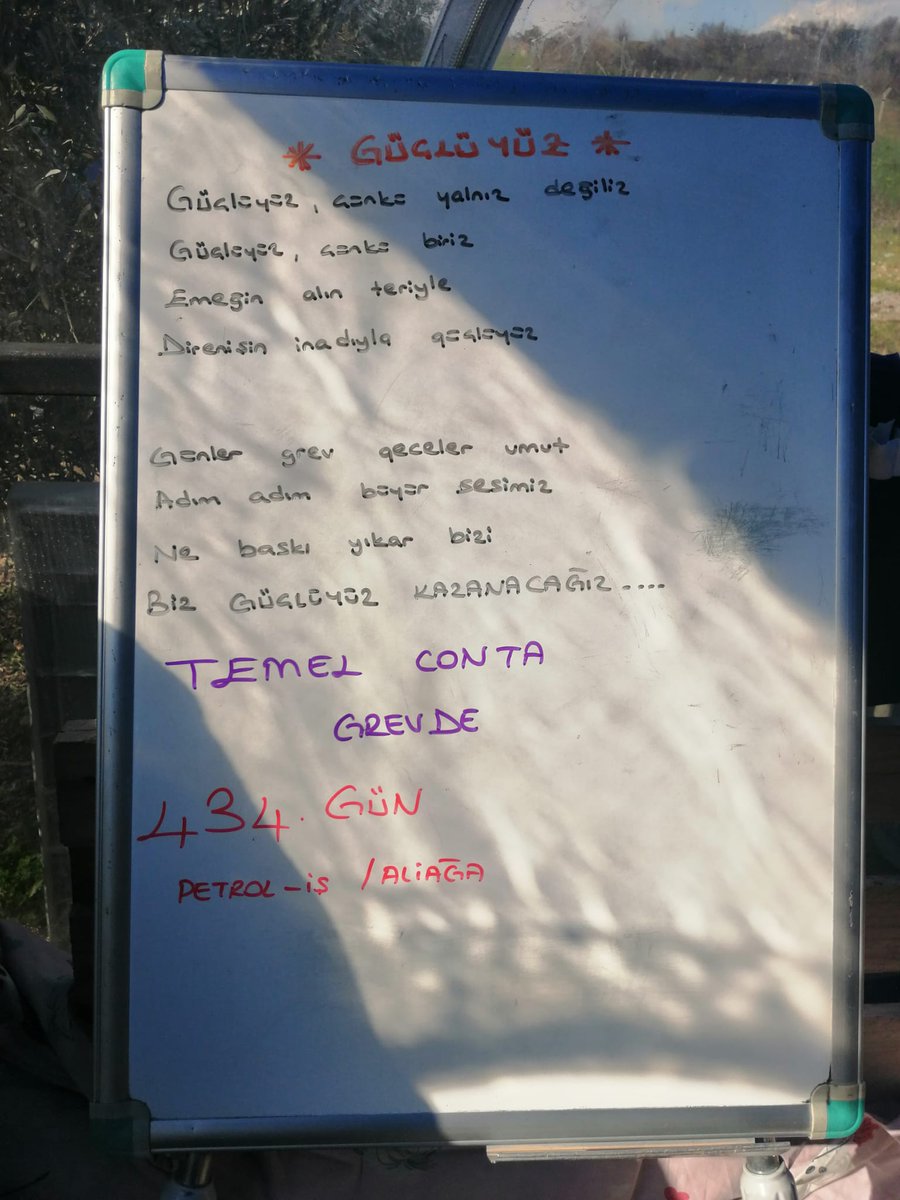 * GÜÇLÜYÜZ *
Güçlüyüz, çünkü yalnız değiliz
Güçlüyüz, çünkü biriz
Emeğin alın teriyle
Direnişin inadıyla güçlüyüz
Günler grev geceler umut
Adım adım büyür sesimiz
Ne baskı yıkar bizi
Biz GÜÇLÜYÜZ KAZANACAĞIZ....
TEMEL CONTA
GREVDE
434. GÜN
PETROL-İŞ /ALİAĞA